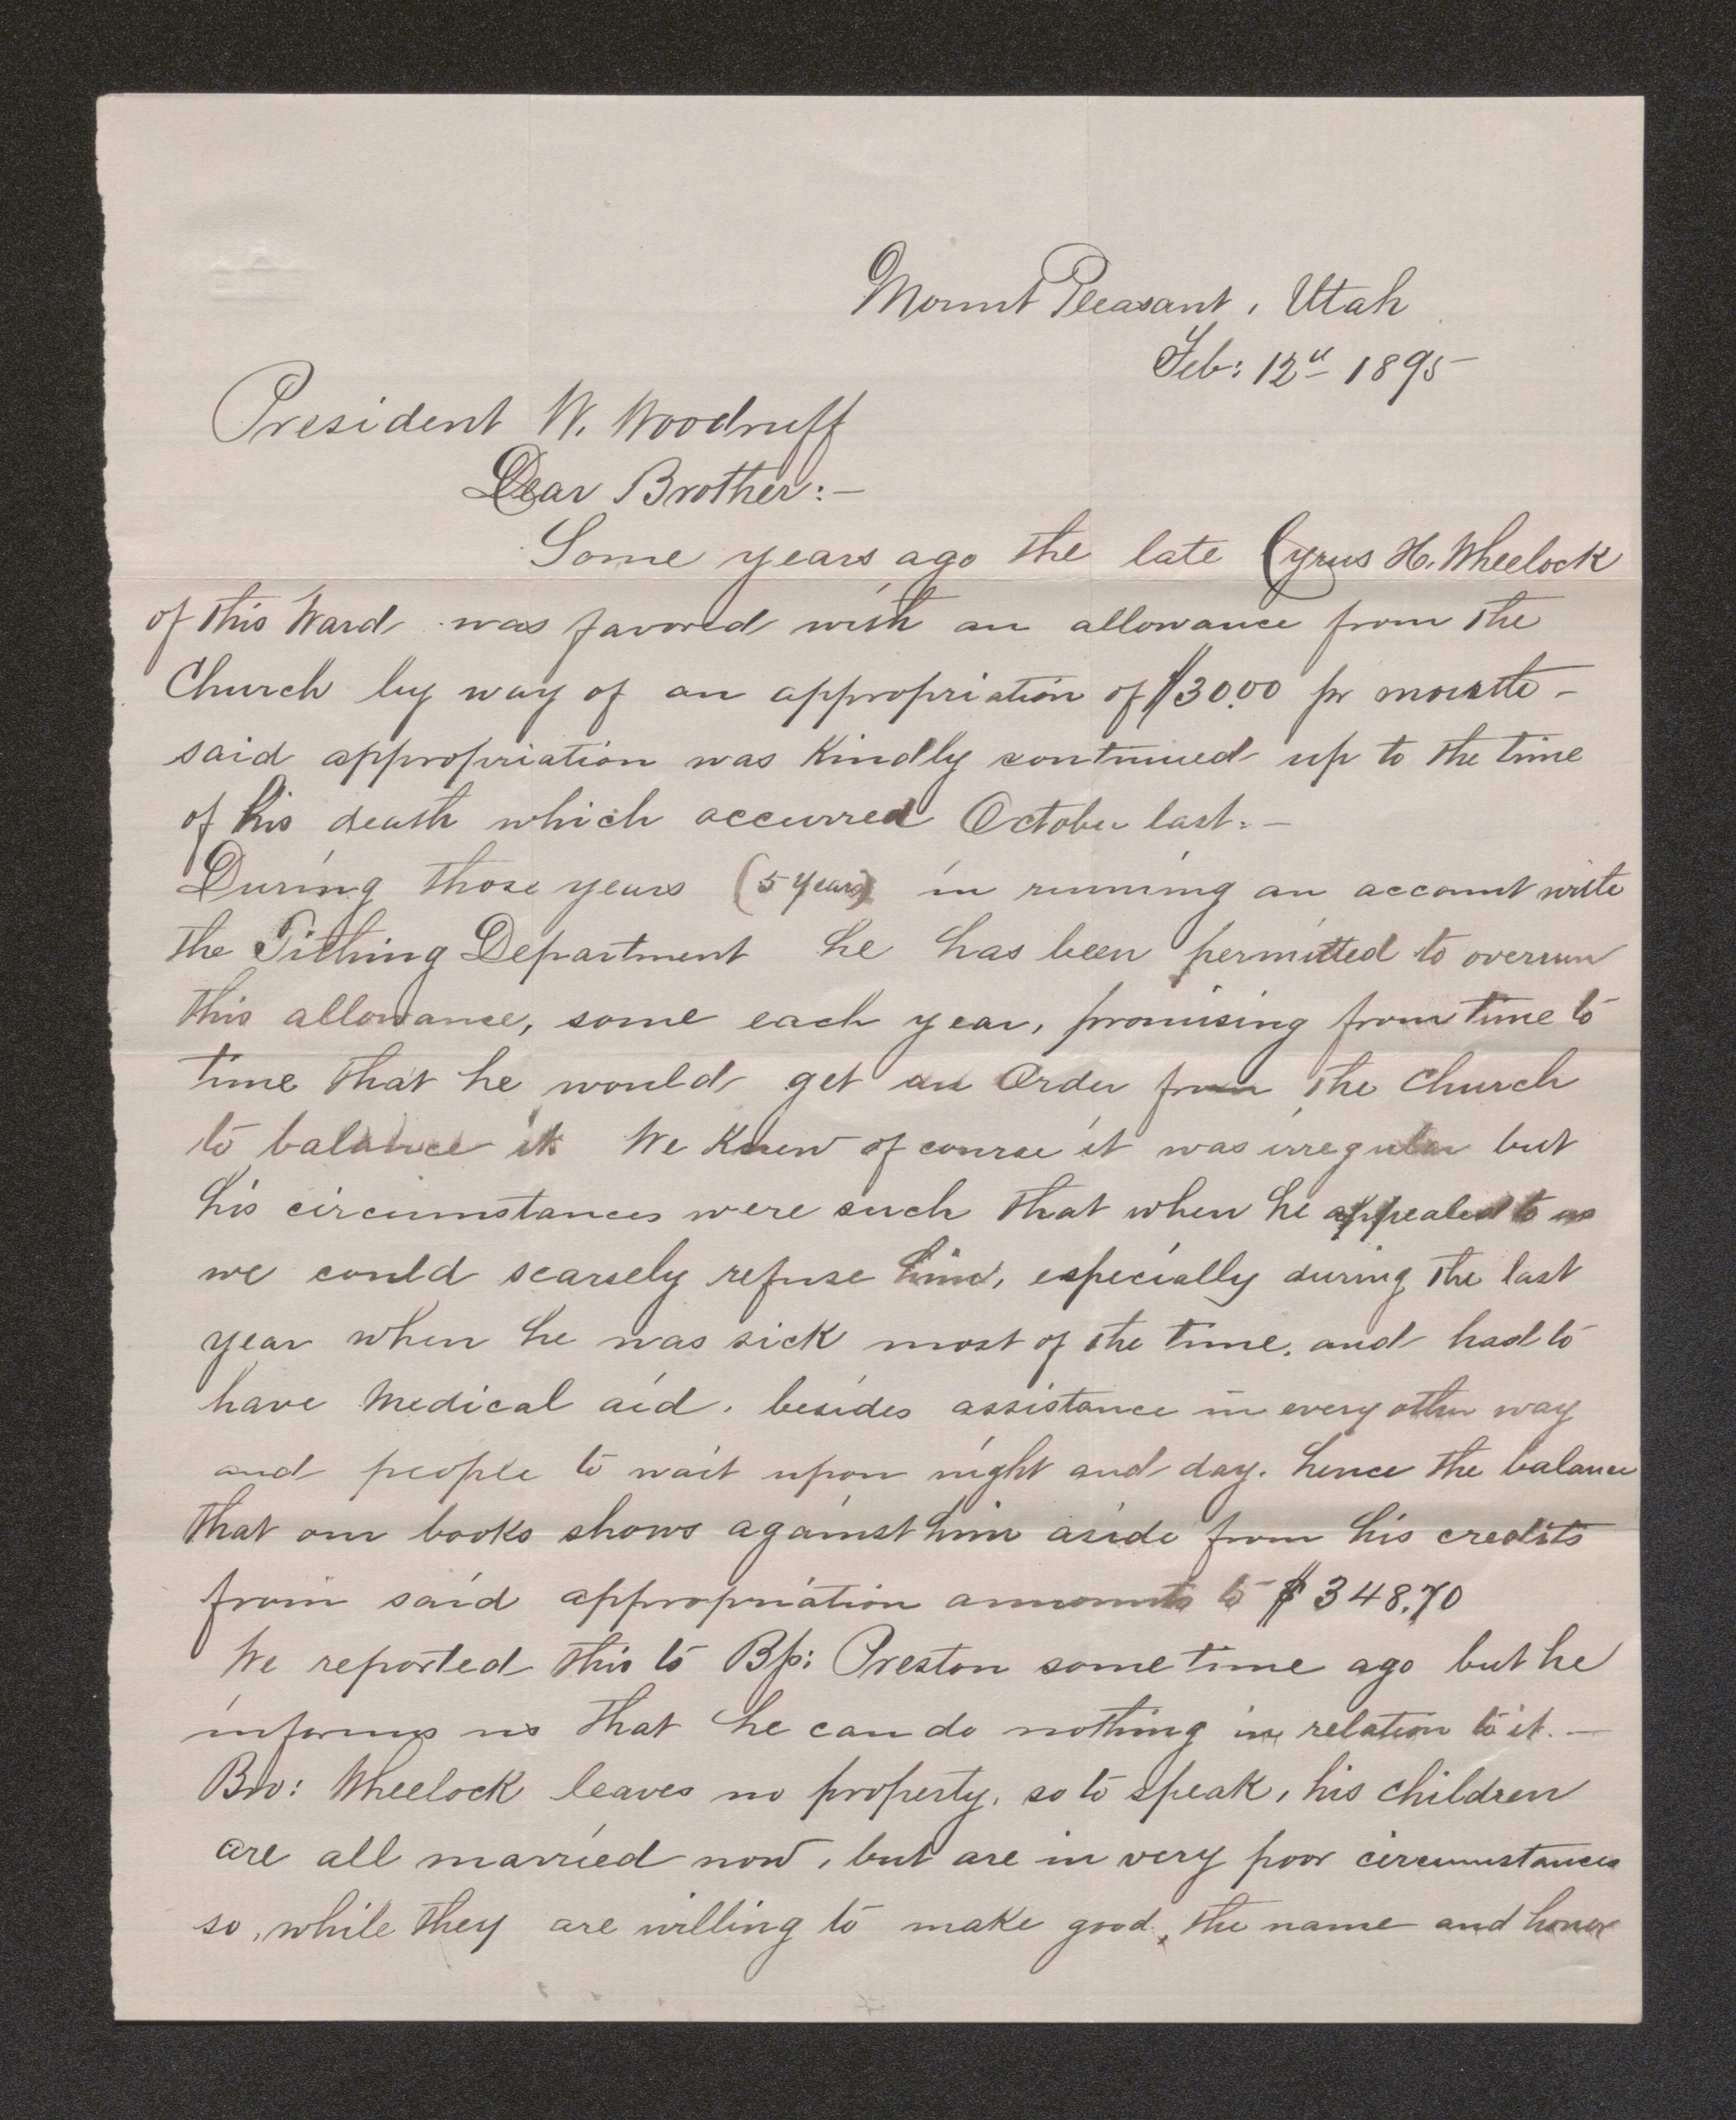 Mount Pleasant, Utah
Feb: 12th 1895
President W. Woodruff
Dear Brother:—
Some years ago the late Cyrus H. Wheelock
of this Ward was favored with an allowance from the
Church by way of an appropriation of $30.00 pr month —
said appropriation was kindly continued up to the time
of his death which occurred October last. —
During those years (5 years) in running an account with
the Tithing Department he has been permitted to overrun
this allowance, some each year, promising from time to
time that he would get an Order from the Church
to balance it We knew of course it was irregular but
his circumstances were such that when he appealed to us
we could scarsely refuse him, especially during the last
year when he was sick most of the time, and had to
have Medical aid, besides assistance in every other way
and people to wait upon night and day. hence the balance
that our books shows against him aside from his credits
from said appropriation ammounts to $348.70
We reported this to Bp: Preston some time ago but he
informs us that he can do nothing in relation to it. —
Bro: Wheelock leaves no property, so to speak, his children
are all married now, but are in very poor circumstances
so, while they are willing to make good, the name and honor